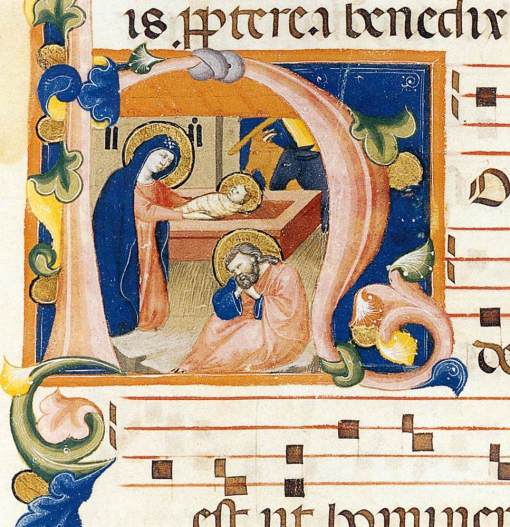 is .ppterea benedix
HO
de
est ut homine